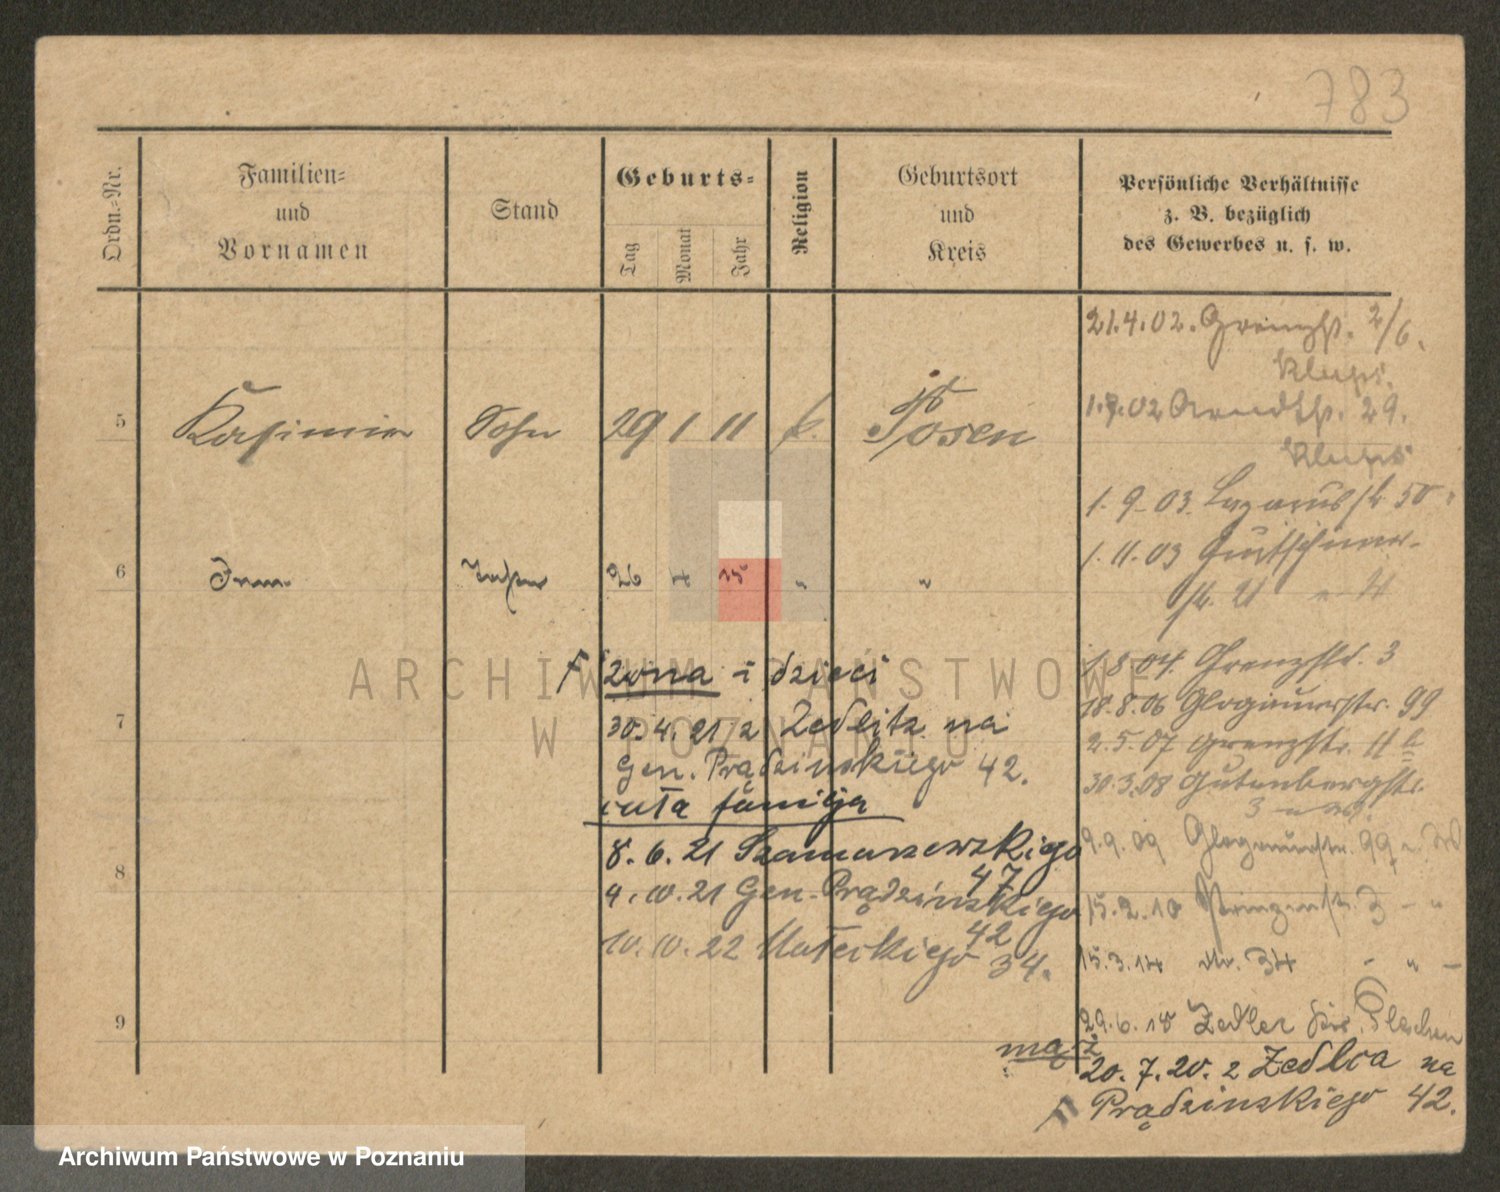 783
Ordn.-Nr.
Familien-
und
Vornamen
Stand
Geburts-
Tag
Monat
Jahr
Religion
Geburtsort
und
Kreis
Persönliche Verhältnisse
z. B. bezüglich
des Gewerbes u. s. w.
5
Kasimir Sohn 29 1 11 k. Posen
6
Tochter 26 4 15 " "
7
8
9
żona i dzieci
30.4.21 z Zedlitz na
Gen. Prądzinskiego 42.
cała familja
8.6.21 Szamarzewskiego
47
4.10.21 Gen. Prądzinskiego
42
10.10.22 Małeckiego 34.
21.4.02. Grenzstr. 2/6.
1.7.02 Arndtstr. 29.
1.9.03. Lazarusstr. 50
1.11.03
1.8.04. Grenzstr. 3
18.8.06 Glogauerstr. 99
2.5.07 Grenzstr. 11 b
30.3.08 Gutenbergstr.
3
9.9.09 Glogauerstr. 99
15.2.10 Prinzenstr. 3 - "
15.3.14 34 - " -
29.6.18 Pleschen
mąż
20.7.20. z na
Prądzinskiego 42.
ARCHIWUM PAŃSTWOWE
W POZNANIU
Archiwum Państwowe w Poznaniu